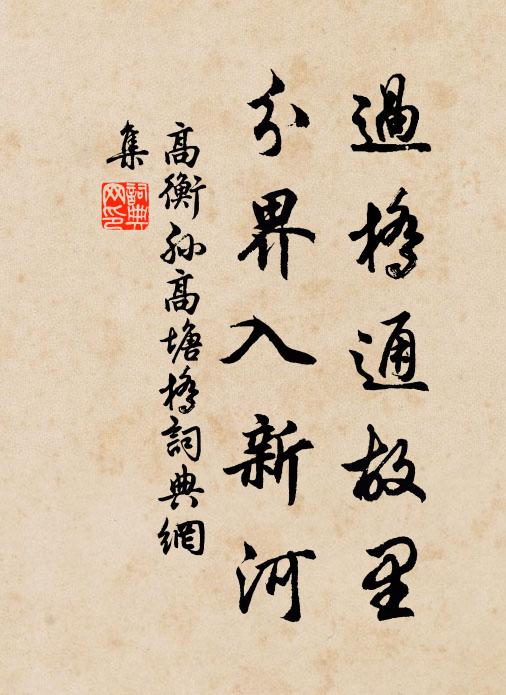 過橋通故里
分界入新河
高衡孙高塘橋詞典網
集
詞典
网印